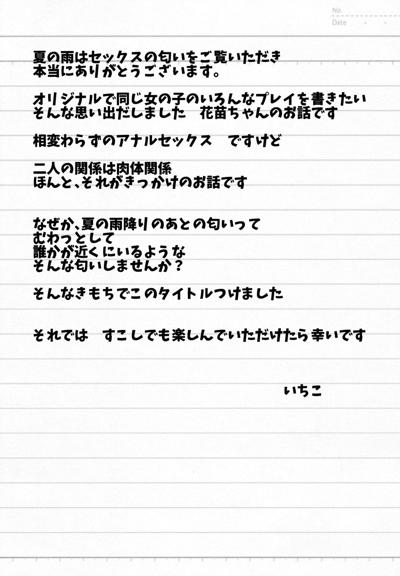 No.
Date ・ ・
夏の雨はセックスの匂いをご覧いただき
本当にありがとうございます。
オリジナルで同じ女の子のいろんなプレイを書きたい
そんな思い出だしました 花苗ちゃんのお話です
相変わらずのアナルセックス ですけど
二人の関係は肉体関係
ほんと、それがきっかけのお話です
なぜか、夏の雨降りのあとの匂いって
むわっとして
誰かが近くにいるような
そんな匂いしませんか?
そんなきもちでこのタイトルつけました
それでは すこしでも楽しんでいただけたら幸いです
いちこ